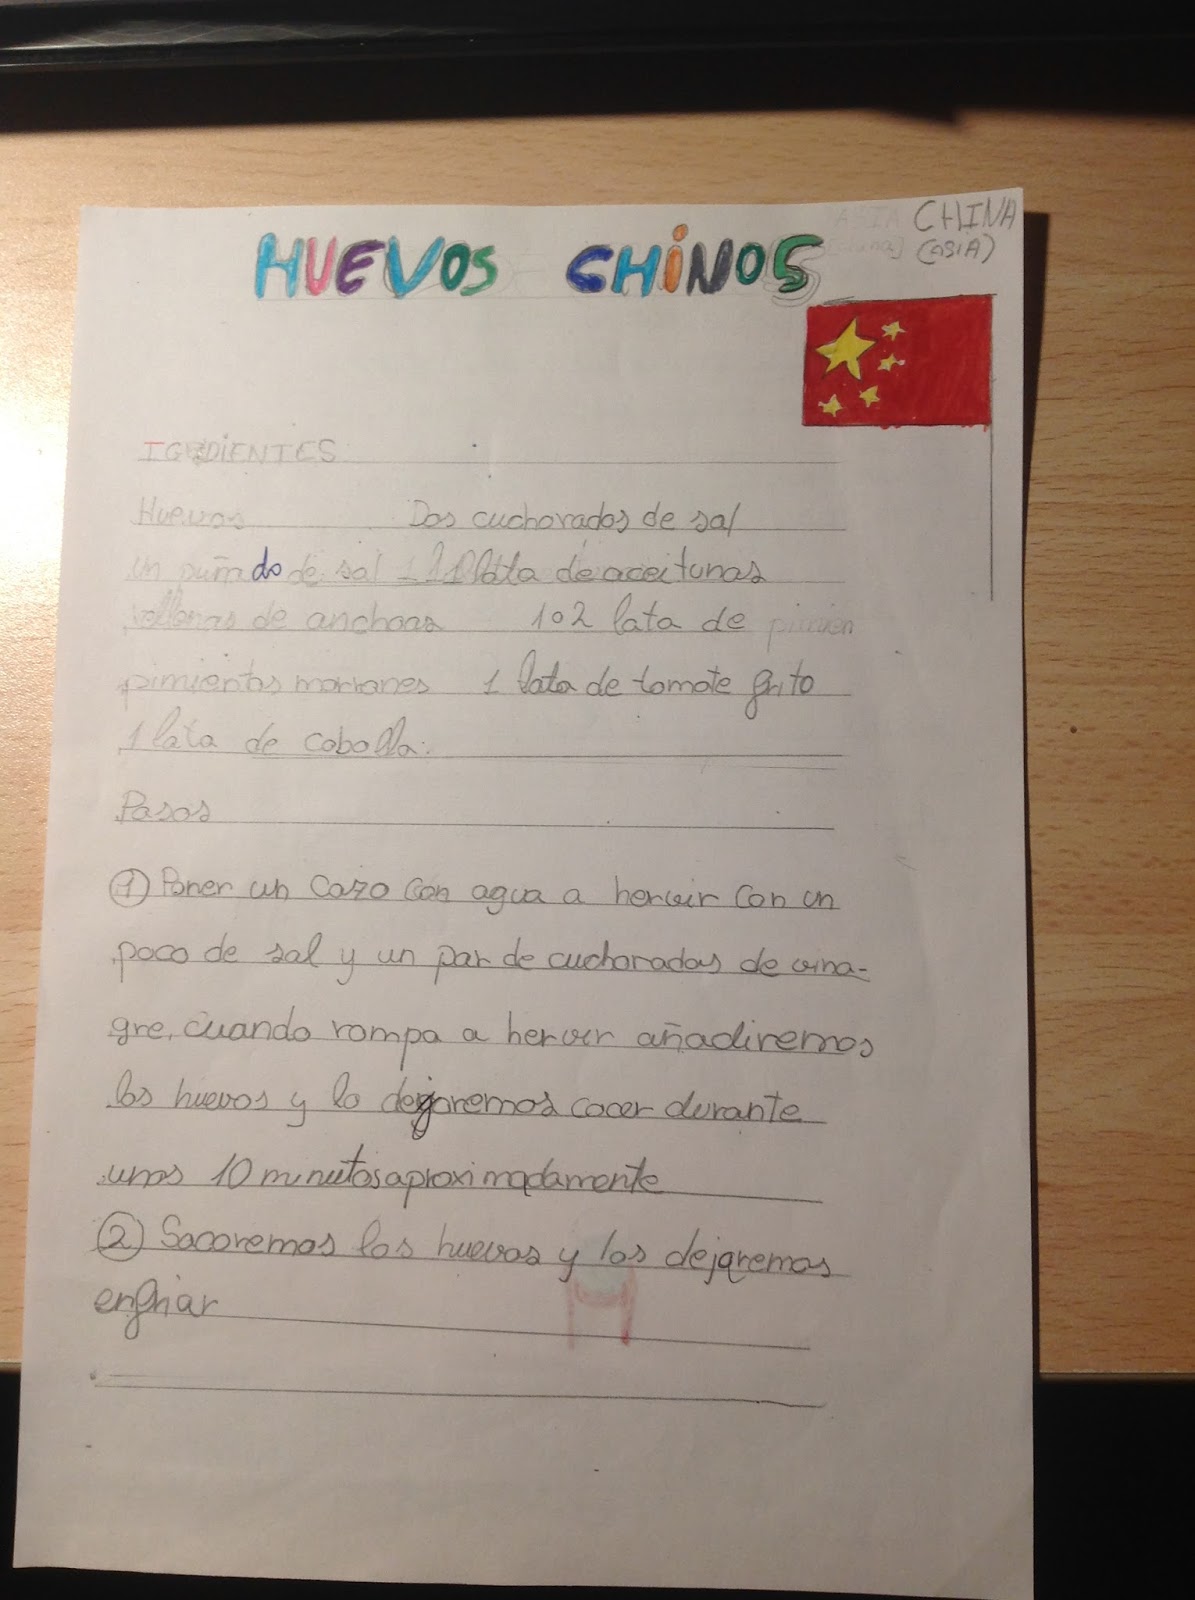 CHINA
HUEVOS CHINOS (ASIA)
IGREDIENTES
Huevos Dos cucharadas de sal
un puñado de sal 1 lata de aceitunas
rellenas de anchoas 1 o 2 lata de pimien
pimientos morrones 1 lata de tomate frito
1 lata de cebolla.
Pasos
1 Poner un cazo con agua a hervir con un
poco de sal y un par de cucharadas de vina-
gre, cuando rompa a hervir añadiremos
los huevos y lo dejaremos cocer durante
unos 10 minutos aproximadamente
2 Sacaremos los huevos y los dejaremos
enfriar